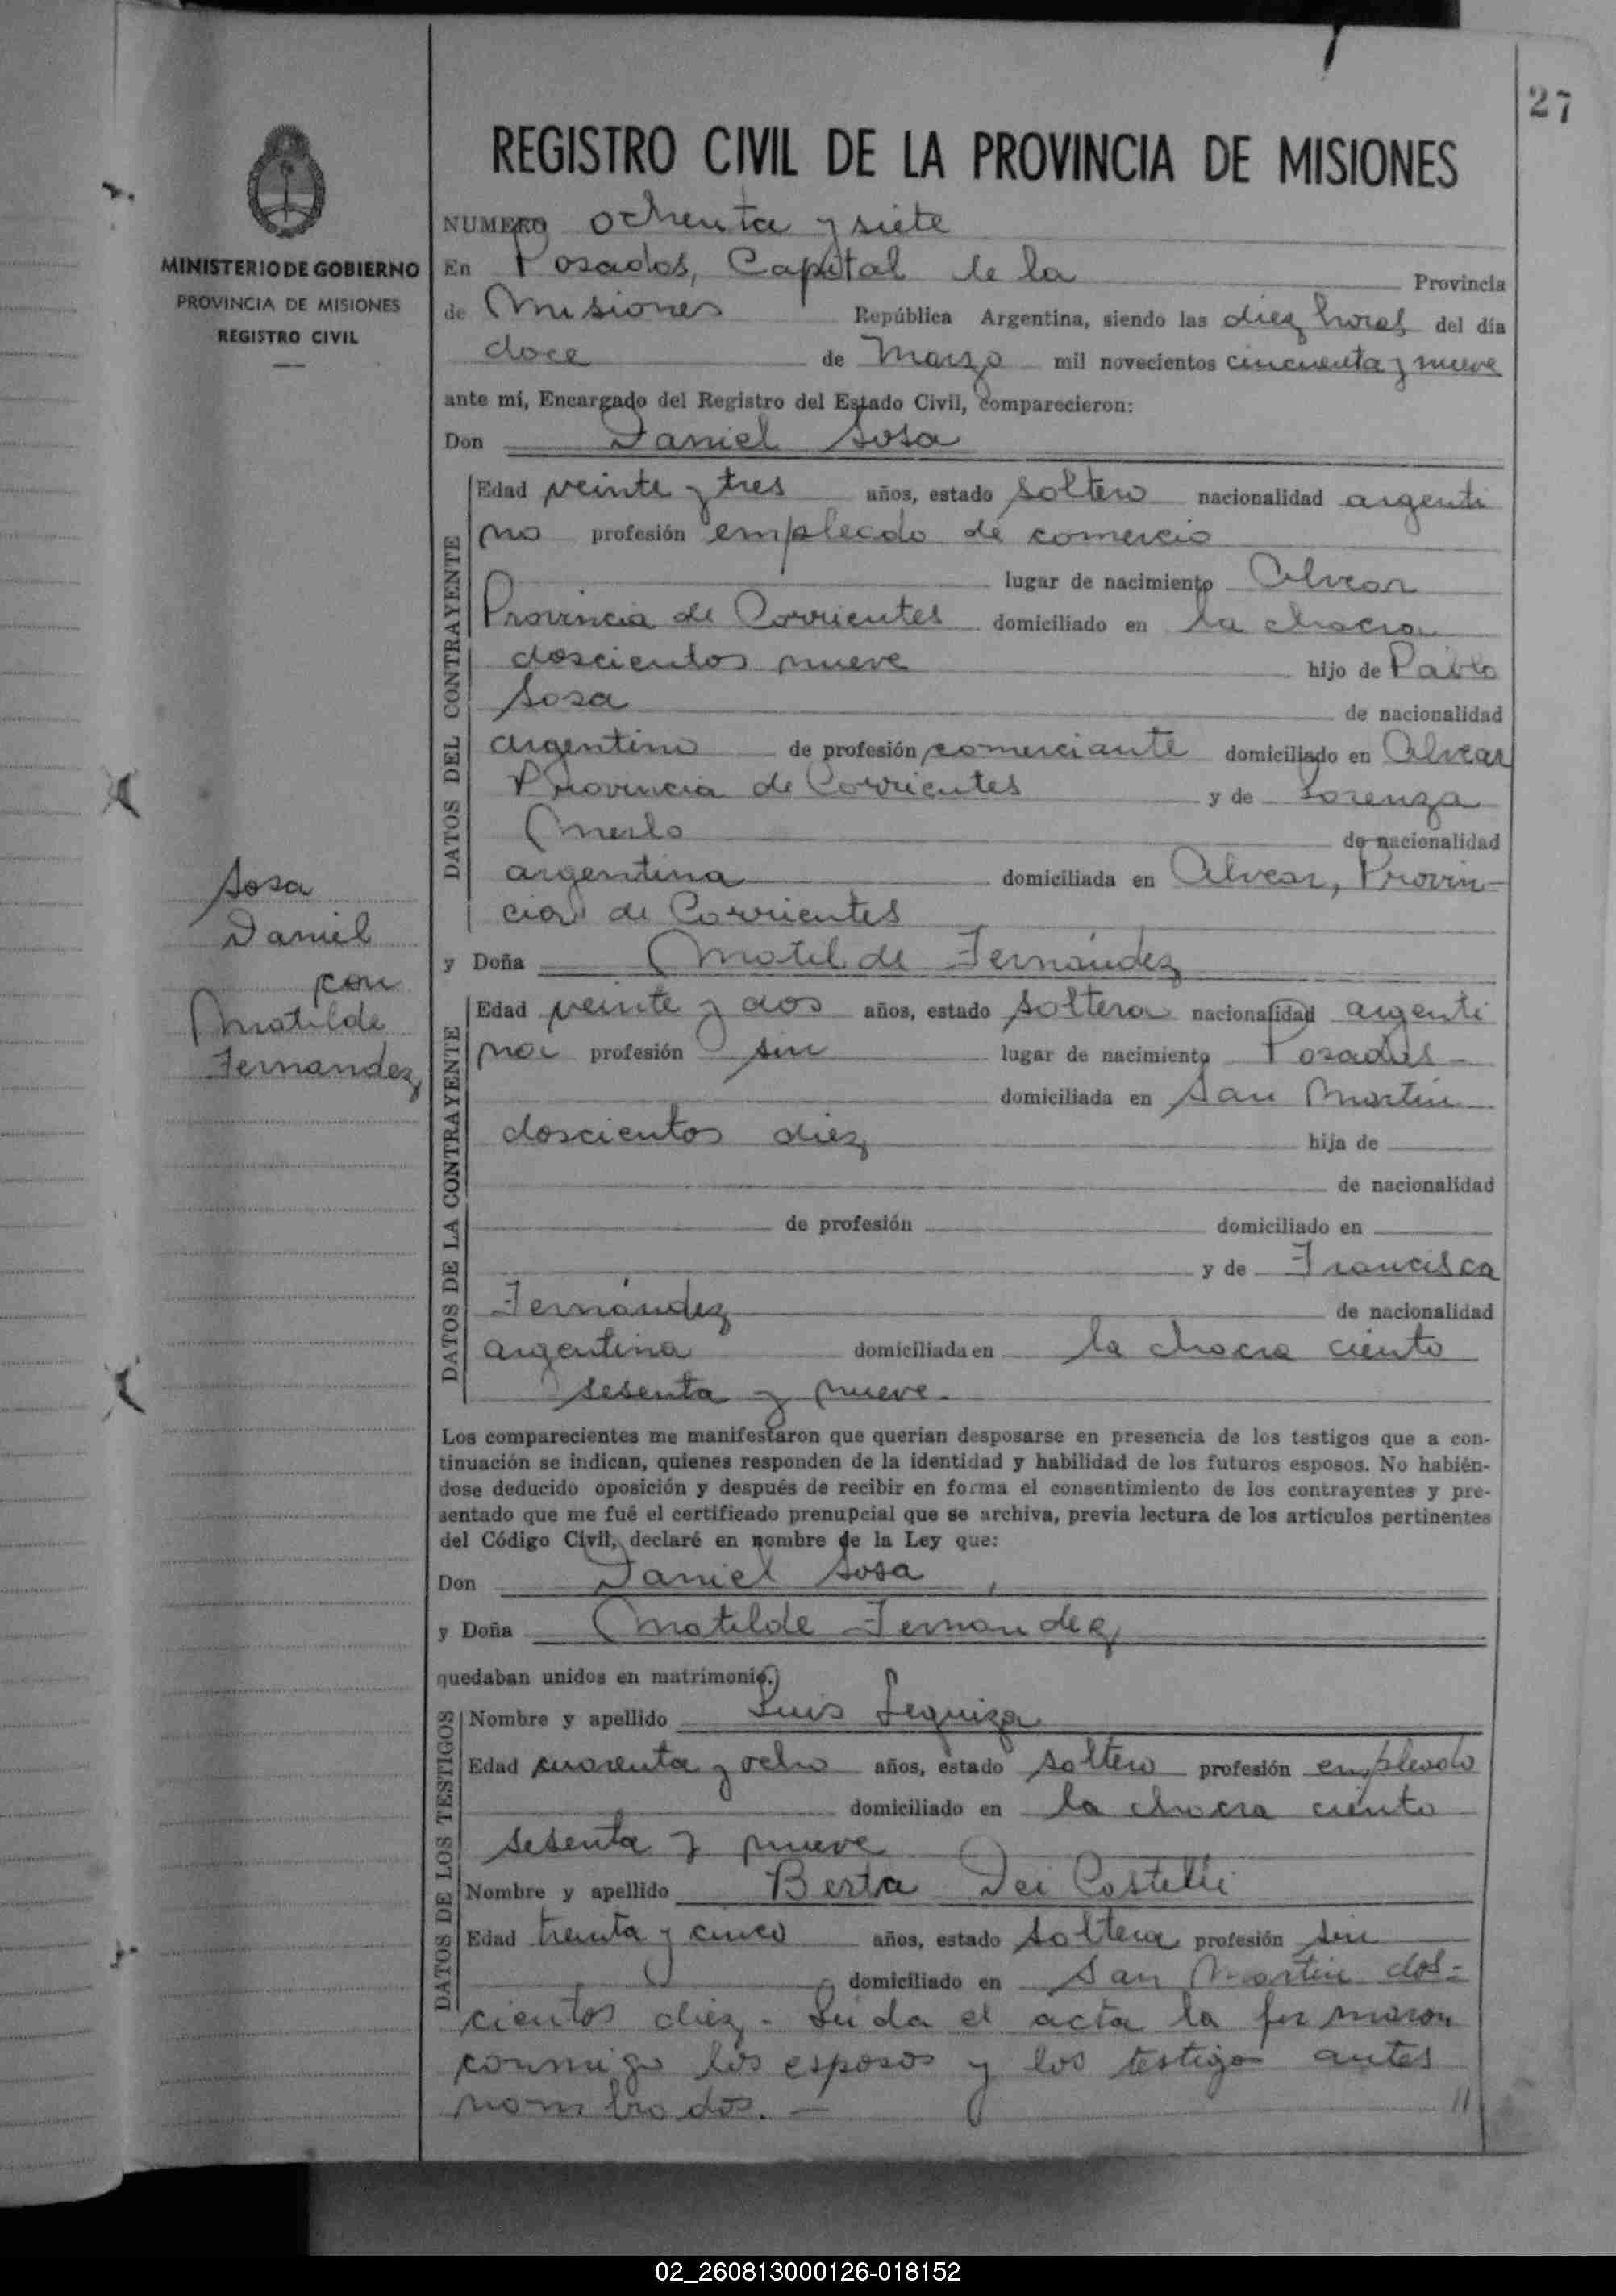 27
REGISTRO CIVIL DE LA PROVINCIA DE MISIONES
MINISTERIO DE GOBIERNO
PROVINCIA DE MISIONES
REGISTRO CIVIL
Sosa
Daniel
con
Matilde
Fernandez
NUMERO ochenta y siete
En Posadas, Capital de la Provincia
de Misiones República Argentina, siendo las diez horas del día
doce de Marzo mil novecientos cincuenta y nueve
ante mí, Encargado del Registro del Estado Civil, comparecieron:
Don Daniel Sosa
DATOS DEL CONTRAYENTE
Edad veinte y tres años, estado soltero nacionalidad argenti
no profesión empleado de comercio
lugar de nacimiento Alvear
Provincia de Corrientes domiciliado en la chacra
doscientos nueve hijo de Pablo
Sosa de nacionalidad
argentino de profesión comerciante domiciliado en Alvear
Provincia de Corrientes y de Lorenza
Merlo de nacionalidad
argentina domiciliada en Alvear, Provin-
cia de Corrientes
y Doña Matilde Fernández
DATOS DE LA CONTRAYENTE
Edad veinte y dos años, estado soltera nacionalidad argenti
na profesión sin lugar de nacimiento Posadas -
domiciliada en San Martín
doscientos diez hija de
de nacionalidad
de profesión domiciliado en
y de Francisca
Fernández de nacionalidad
argentina domiciliada en la chacra ciento
sesenta y nueve.
Los comparecientes me manifestaron que querían desposarse en presencia de los testigos que a con-
tinuación se indican, quienes responden de la identidad y habilidad de los futuros esposos. No habién-
dose deducido oposición y después de recibir en forma el consentimiento de los contrayentes y pre-
sentado que me fué el certificado prenupcial que se archiva, previa lectura de los artículos pertinentes
del Código Civil, declaré en nombre de la Ley que:
Don Daniel Sosa
y Doña Matilde Fernandez
quedaban unidos en matrimonio.
DATOS DE LOS TESTIGOS
Nombre y apellido Luis Leguiza
Edad cuarenta y ocho años, estado soltero profesión empleado
domiciliado en la chacra ciento
sesenta y nueve
Nombre y apellido Berta Dei Castelli
Edad treinta y cinco años, estado soltera profesión sin
domiciliado en San Martin dos=
cientos diez. - Leida el acta la firmaron
conmigo los esposos y los testigos antes
nombrados. — //
02_260813000126-018152